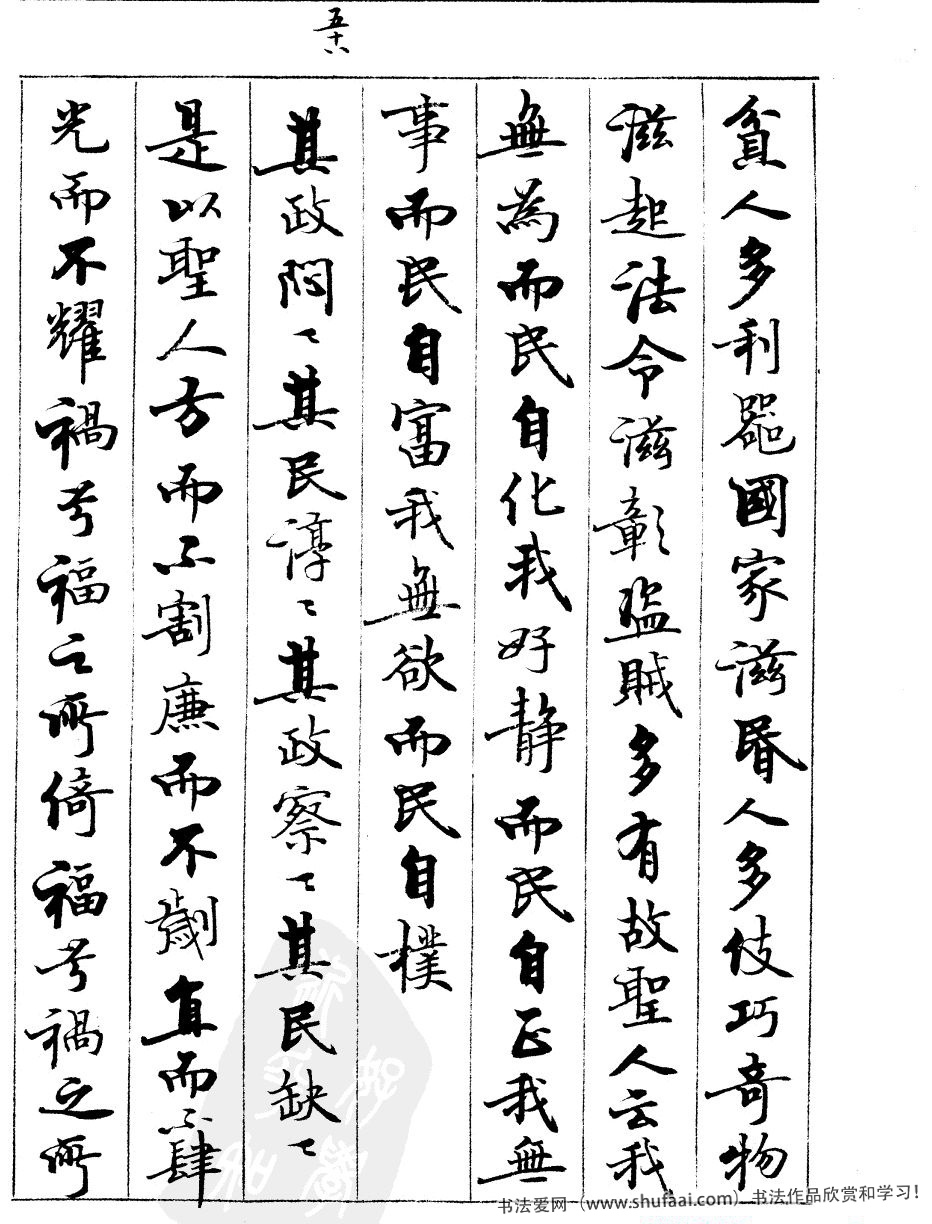 五十八
貧人多利器國家滋昬人多伎巧奇物
滋起法令滋彰盜賊多有故聖人云我
無為而民自化我好靜而民自正我無
事而民自富我無欲而民自樸
其政悶〻其民淳〻其政察〻其民缺〻
是以聖人方而不割廉而不劌直而不肆
光而不耀禍兮福之所倚福兮禍之所
书法爱网（www.shufaai.com）书法作品欣赏和学习！